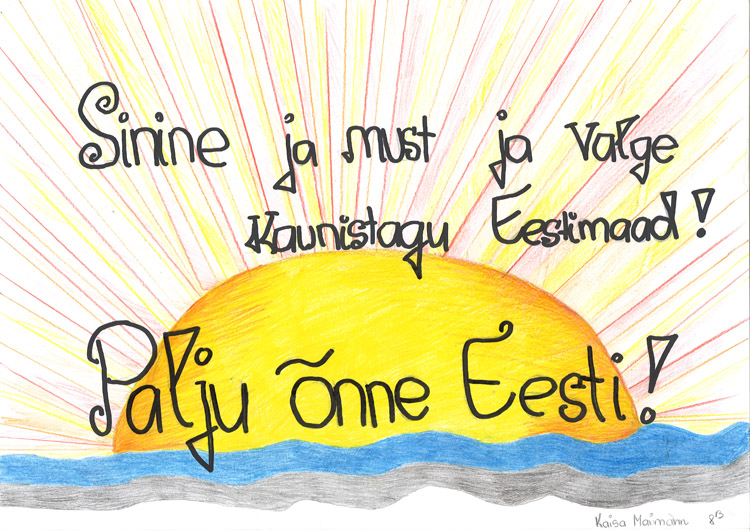 Sinine ja must ja valge
kaunistagu Eestimaad!
Palju õnne Eesti!
Kaisa Maimann 8B